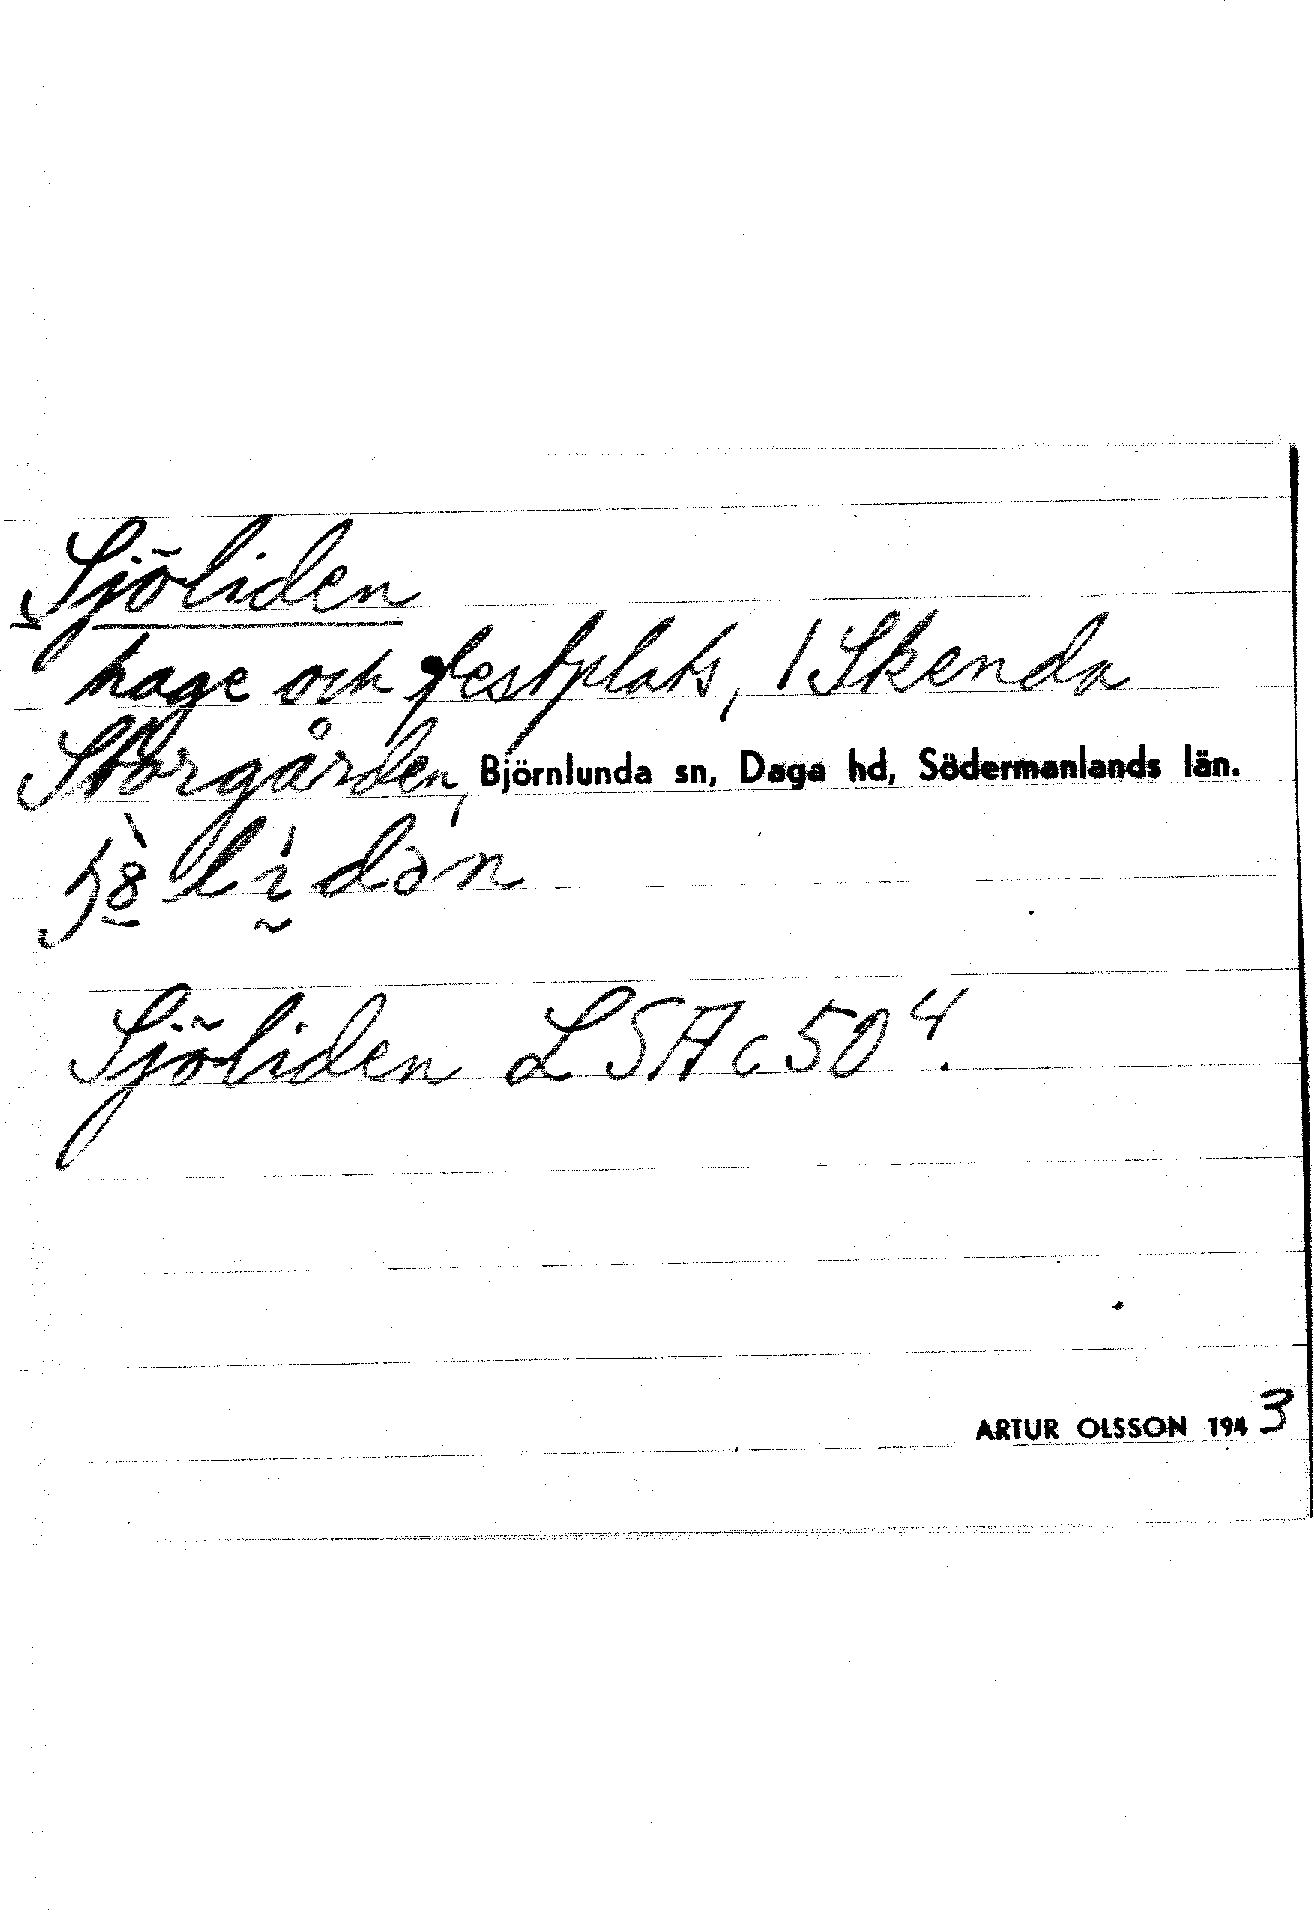 Sjöliden
hage och festplats, 1 Skenda
Storgården, Björnlunda sn, Daga hd, Södermanlands län.
Sjöliden LSA c 50 4.
ARTUR OLSSON 1943